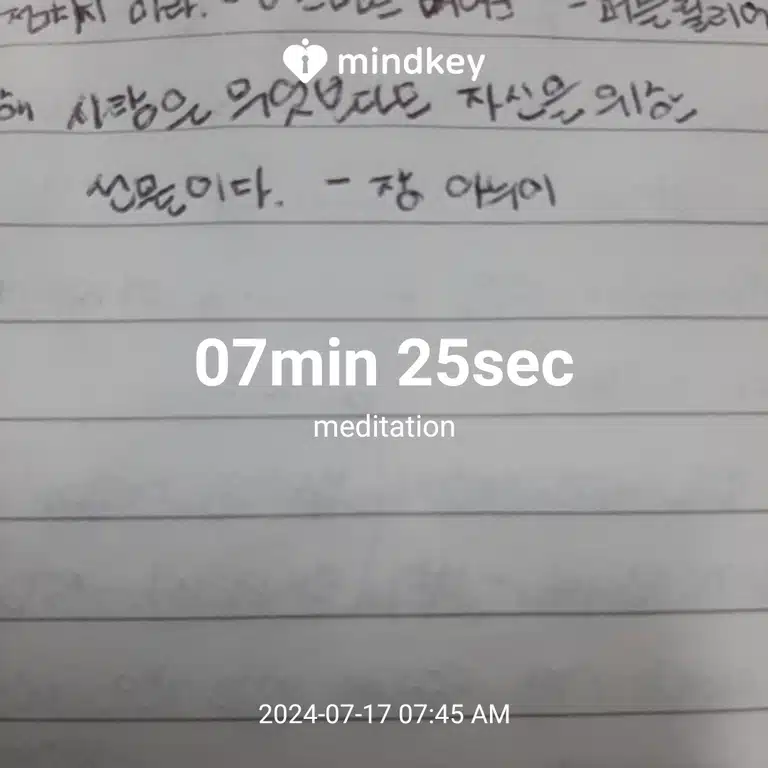 mindkey
사랑은 무엇보다도 자신을 위한
선물이다. - 장 아누이
07min 25sec
meditation
2024-07-17 07:45 AM